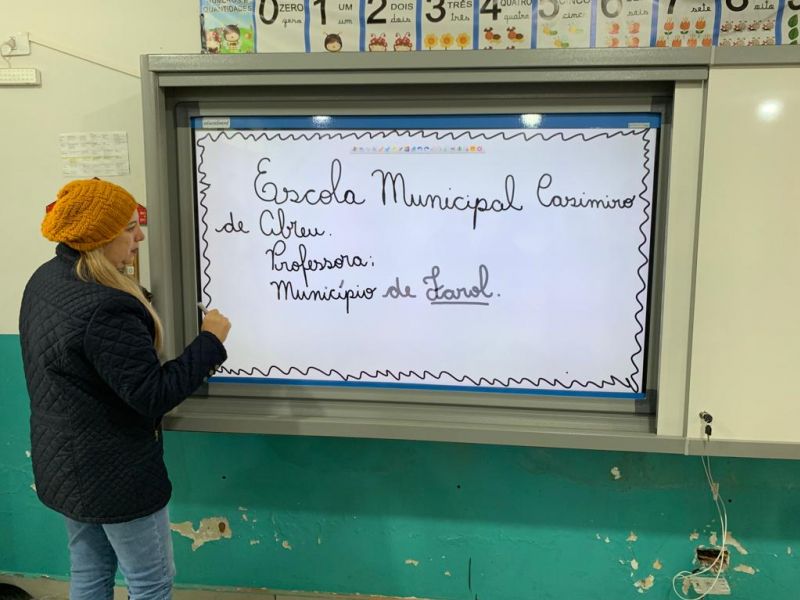 NÚMEROS E
QUANTIDADES
0 ZERO
1 UM
um
2 DOIS
dois
3 TRÊS
três
4 QUATRO
quatro
5 CINCO
cinco
6 SEIS
seis
7 SETE
sete
8 OITO
oito
Escola Municipal Casimiro
de Abreu.
Professora:
Município de Farol.